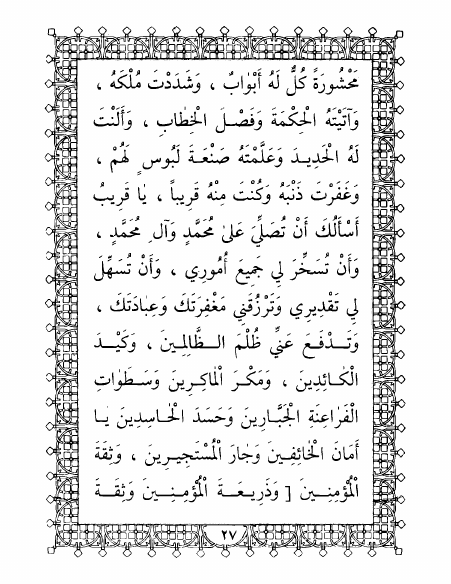 مَحْشُورَةً كُلٌّ لَهُ أَبْوٰابٌ ، وَشَدَدْتَ مُلْكَهُ ،
وَآتَيْتَهُ الْحِكْمَةَ وَفَصْلَ الْخِطٰابِ ، وَأَلَنْتَ
لَهُ الْحَدِيدَ وَعَلَّمْتَهُ صَنْعَةَ لَبُوسٍ لَهُمْ ،
وَغَفَرْتَ ذَنْبَهُ وَكُنْتَ مِنْهُ قَرِيباً ، يٰا قَرِيبُ
أَسْأَلُكَ أَنْ تُصَلِّيَ عَلىٰ مُحَمَّدٍ وَآلِ مُحَمَّدٍ ،
وَأَنْ تُسَخِّرَ لِي جَمِيعَ أُمُورِي ، وَأَنْ تُسَهِّلَ
لِي تَقْدِيرِي وَتَرْزُقَنِي مَغْفِرَتَكَ وَعِبٰادَتَكَ ،
وَتَدْفَعَ عَنِّي ظُلْمَ الظَّالِمِينَ ، وَكَيْدَ
الْكٰائِدِينَ ، وَمَكْرَ الْمٰاكِرِينَ وَسَطَوٰاتِ
الْفَرٰاعِنَةِ الْجَبّٰارِينَ وَحَسَدَ الْحٰاسِدِينَ يٰا
أَمٰانَ الْخٰائِفِينَ وَجٰارَ الْمُسْتَجِيرِينَ ، وَثِقَةَ
الْمُؤْمِنِينَ [ وَذَرِيعَةَ الْمُؤْمِنِينَ وَثِقَةَ
٢٧